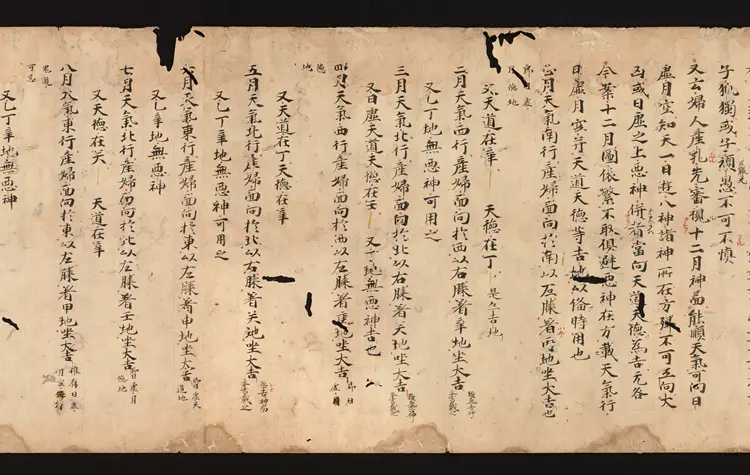 子孤獨或子禍愚不可不慎
又云婦人産乳先審視十二月神啚能順天氣可向日
虚月空知天一日遊八神諸神所在方獄不可正向大
凶或日虚之上悪神併者當向天道天德為吉兀各
今案十二月圖依繁不取俱避悪神在方載天氣行
日虚月空并天道天德等吉地以俻時用也
正月天氣南行産婦面向於南以左膝著丙地坐大吉也
天道在辛 天德在丁 是人吉地
二月天氣西行産婦面向於西以右膝著辛地坐大吉
又乙丁地無悪神可用之
三月天氣北行産婦面向於北以右膝著地坐大吉
又日虚天道天德在壬 又地無悪神吉也
四月天氣西行産婦面向於西以左膝著庚地坐大吉
又天道在丁天德在辛
五月天氣北行産婦面向於北以右膝著地坐大吉
又乙丁辛地無悪神可用之
六月天氣東行産婦面向於東以右膝著甲地坐大吉
又乙辛地無悪神
七月天氣北行産婦面向於北以左膝著壬地坐大吉
又天德在 天道在辛
八月天氣東行産婦面向於東以左膝著甲地坐大吉
又乙丁辛地無悪神